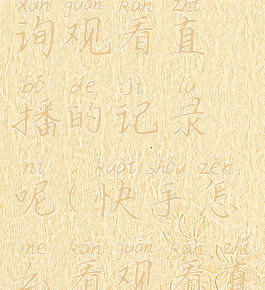 xún guān kàn zhí
询观看直
bō de jì lù
播的记录
ní kuài shǒu zěn
呢(快手怎
me kān guān kàn zhí
么看观看直